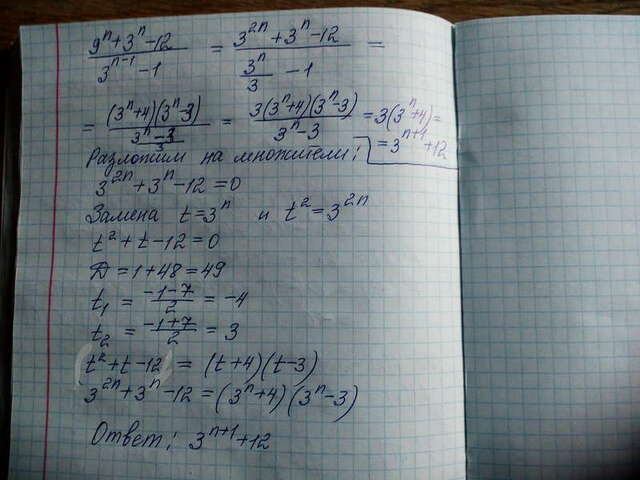 (9ⁿ+3ⁿ-12)/(3ⁿ⁻¹-1) = (3²ⁿ+3ⁿ-12)/(3ⁿ/3 -1) =
= (3ⁿ+4)(3ⁿ-3)/((3ⁿ-3)/3) = 3(3ⁿ+4)(3ⁿ-3)/(3ⁿ-3) = 3(3ⁿ+4)=
= 3ⁿ⁺¹+12
Разложим на множители:
3²ⁿ+3ⁿ-12=0
Замена t=3ⁿ и t²=3²ⁿ
t²+t-12=0
D=1+48=49
t₁ = (-1-7)/2 = -4
t₂ = (-1+7)/2 = 3
t²+t-12 = (t+4)(t-3)
3²ⁿ+3ⁿ-12=(3ⁿ+4)(3ⁿ-3)
Ответ: 3ⁿ⁺¹+12